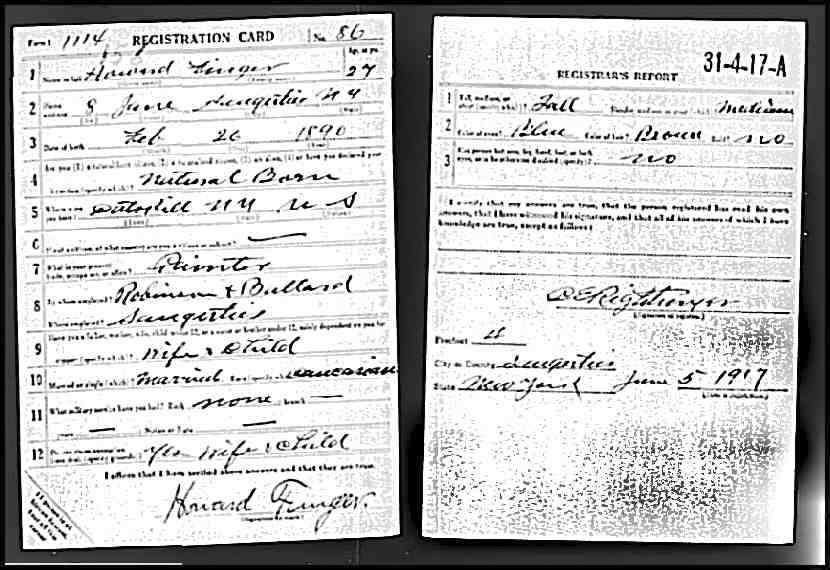 Form 1 1114 REGISTRATION CARD No. 86
1 Name in full Howard Finger Age, in yrs. 27
2 Home address 8 June Saugerties N Y
3 Date of birth Feb 26 1890
4 Natural Born
5 Where were you born? N Y U S
6 —
7 What is your present trade, occupation, or office?
8 By whom employed? Robinson & Ballard
Where employed? Saugerties
9 Have you a father, mother, wife, child under 12, or a sister or brother under 12, solely dependent on you for support (specify which)? Wife & Child
10 Married or single (which)? Married Race (specify which)? Caucasian
11 What military service have you had? Rank none branch —
years — Nation or State —
12 Do you claim exemption from draft (specify grounds)? Yes Wife & Child
I affirm that I have verified above answers and that they are true.
Howard Finger.
31-4-17-A
REGISTRAR'S REPORT
1 Tall, medium, or short (specify which)? Tall Slender, medium, or stout (which)? Medium
2 Color of eyes? Blue Color of hair? Brown Bald? No
3 Has person lost arm, leg, hand, foot, or both eyes, or is he otherwise disabled (specify)? No
I certify that my answers are true, that the person registered has read his own
answers, that I have witnessed his signature, and that all of his answers of which I have
knowledge are true, except as follows:
(Signature of registrar)
Precinct 4
City or County Saugerties
State New York June 5 1917
(Date of registration)